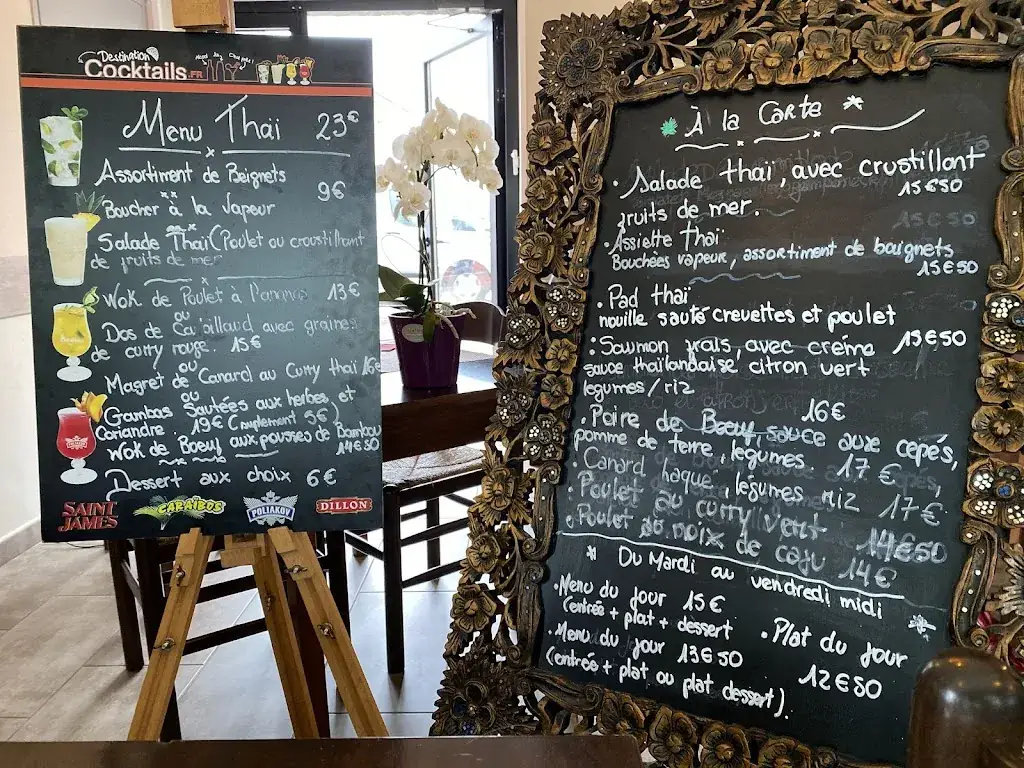 Destination
Cocktails.FR
Menu Thaï 23€
Assortiment de Beignets
9€
Boucher à la Vapeur
Salade Thaï (Poulet ou croustillant
de fruits de mer
Wok de Poulet à l'ananas 13€
ou
Dos de Cabillaud avec graines
de curry rouge. 15€
ou
Magret de Canard au Curry thaï 16€
ou
Gambas Sautées aux herbes et
Coriandre 19€ (suplement 5€)
Wok de Boeuf aux pousses de Bambou
14€50
Dessert aux choix 6€
SAINT JAMES
CARAÏBOS
POLIAKOV
DILLON
À la Carte
• Salade thaï, avec crustillant
fruits de mer. 15€50
• Assiette Thaï
Bouchées vapeur, assortiment de baignets
15€50
• Pad thaï
nouille sauté crevettes et poulet
15€50
• Saumon frais, avec créme
sauce thaïlandaise citron vert
legumes/riz
16€
• Paire de Boeuf, sauce aux cepés,
pomme de terre, legumes. 17€
• Canard laque, légumes riz 17€
• Poulet au curry vert 14€50
• Poulet au noix de caju 14€
* Du Mardi au vendredi midi
• Menu du jour 15€
(entrée + plat + dessert
• Menu du jour 13€50
(entrée + plat ou plat dessert).
• Plat du jour
12€50